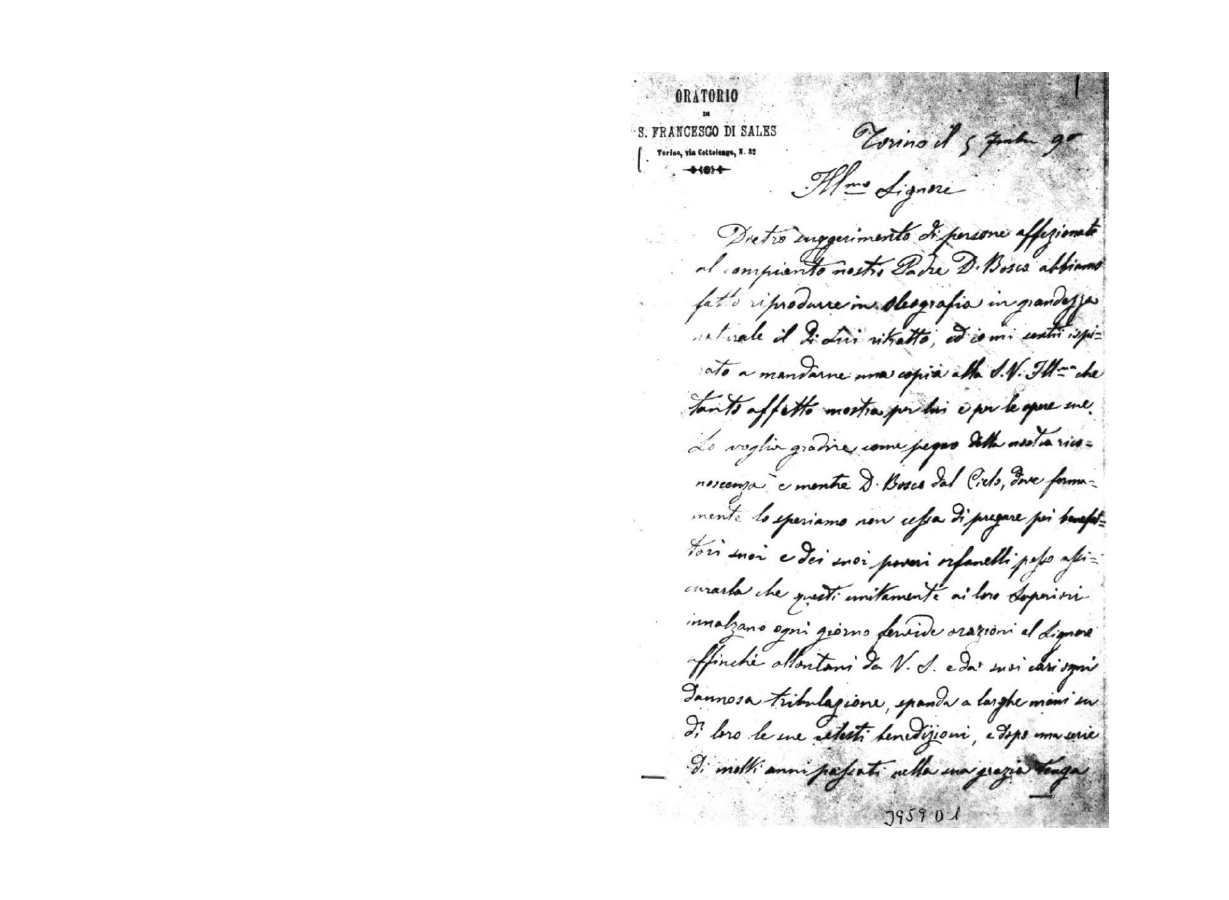 ORATORIO
DI
S. FRANCESCO DI SALES
Torino, via Cottolengo, N. 32
Torino il 5 90
Ill.mo Signore
Dietro suggerimento di persone affezionate
al compianto nostro Padre D. Bosco abbiamo
fatto riprodurre in oleografia in grandezza
naturale il di Lui ritratto, ed io mi sentii ispi=
rato a mandarne una copia alla S.V. Ill.ma che
tanto affetto mostra per lui e per le opere sue.
Lo voglia gradire come pegno della nostra rico=
noscenza e mentre D. Bosco dal Cielo, dove ferma=
mente lo speriamo non cessa di pregare pei benefat=
tori suoi e dei suoi poveri orfanelli posso assi=
curarla che questi unitamente ai loro Superiori
innalzano ogni giorno fervide orazioni al Signore
affinchè allontani da V. S. e da' suoi cari ogni
dannosa tribulazione, spanda a larghe mani su
di loro le sue celesti benedizioni, e dopo una serie
di molti anni passati nella sua grazia tenga
3959 D 1